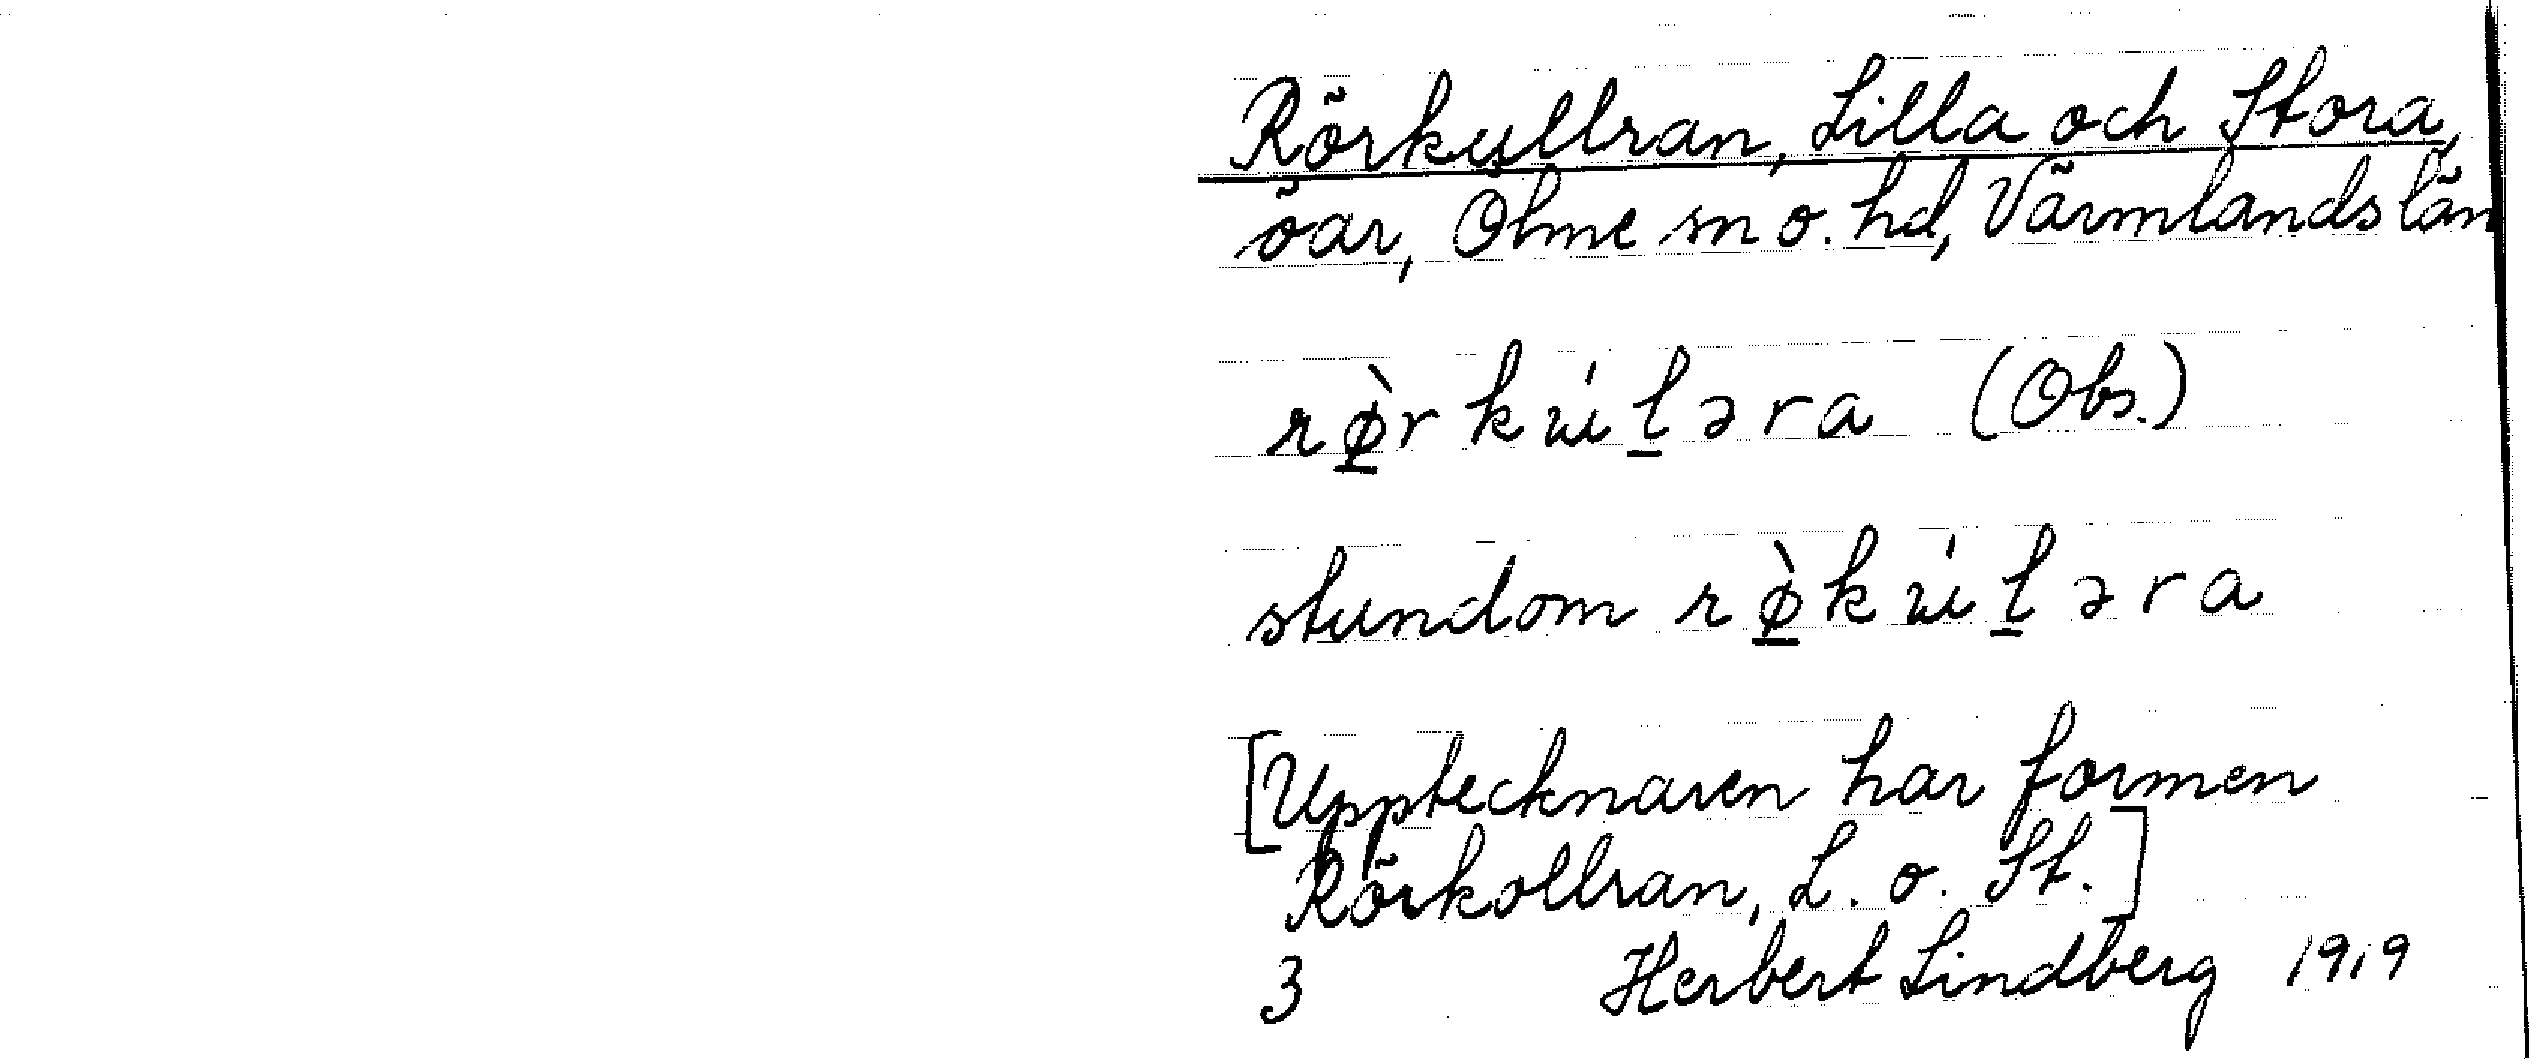 Rörkullran, Lilla och Stora,
öar, Ölme sn o. hd, Värmlands län
rø̱̀rkúḻəra (Obs.)
stundom rø̱̀kúḻəra
[Upptecknaren har formen
Rörkollran, L. o. St.]
3 Herbert Lindberg 1919